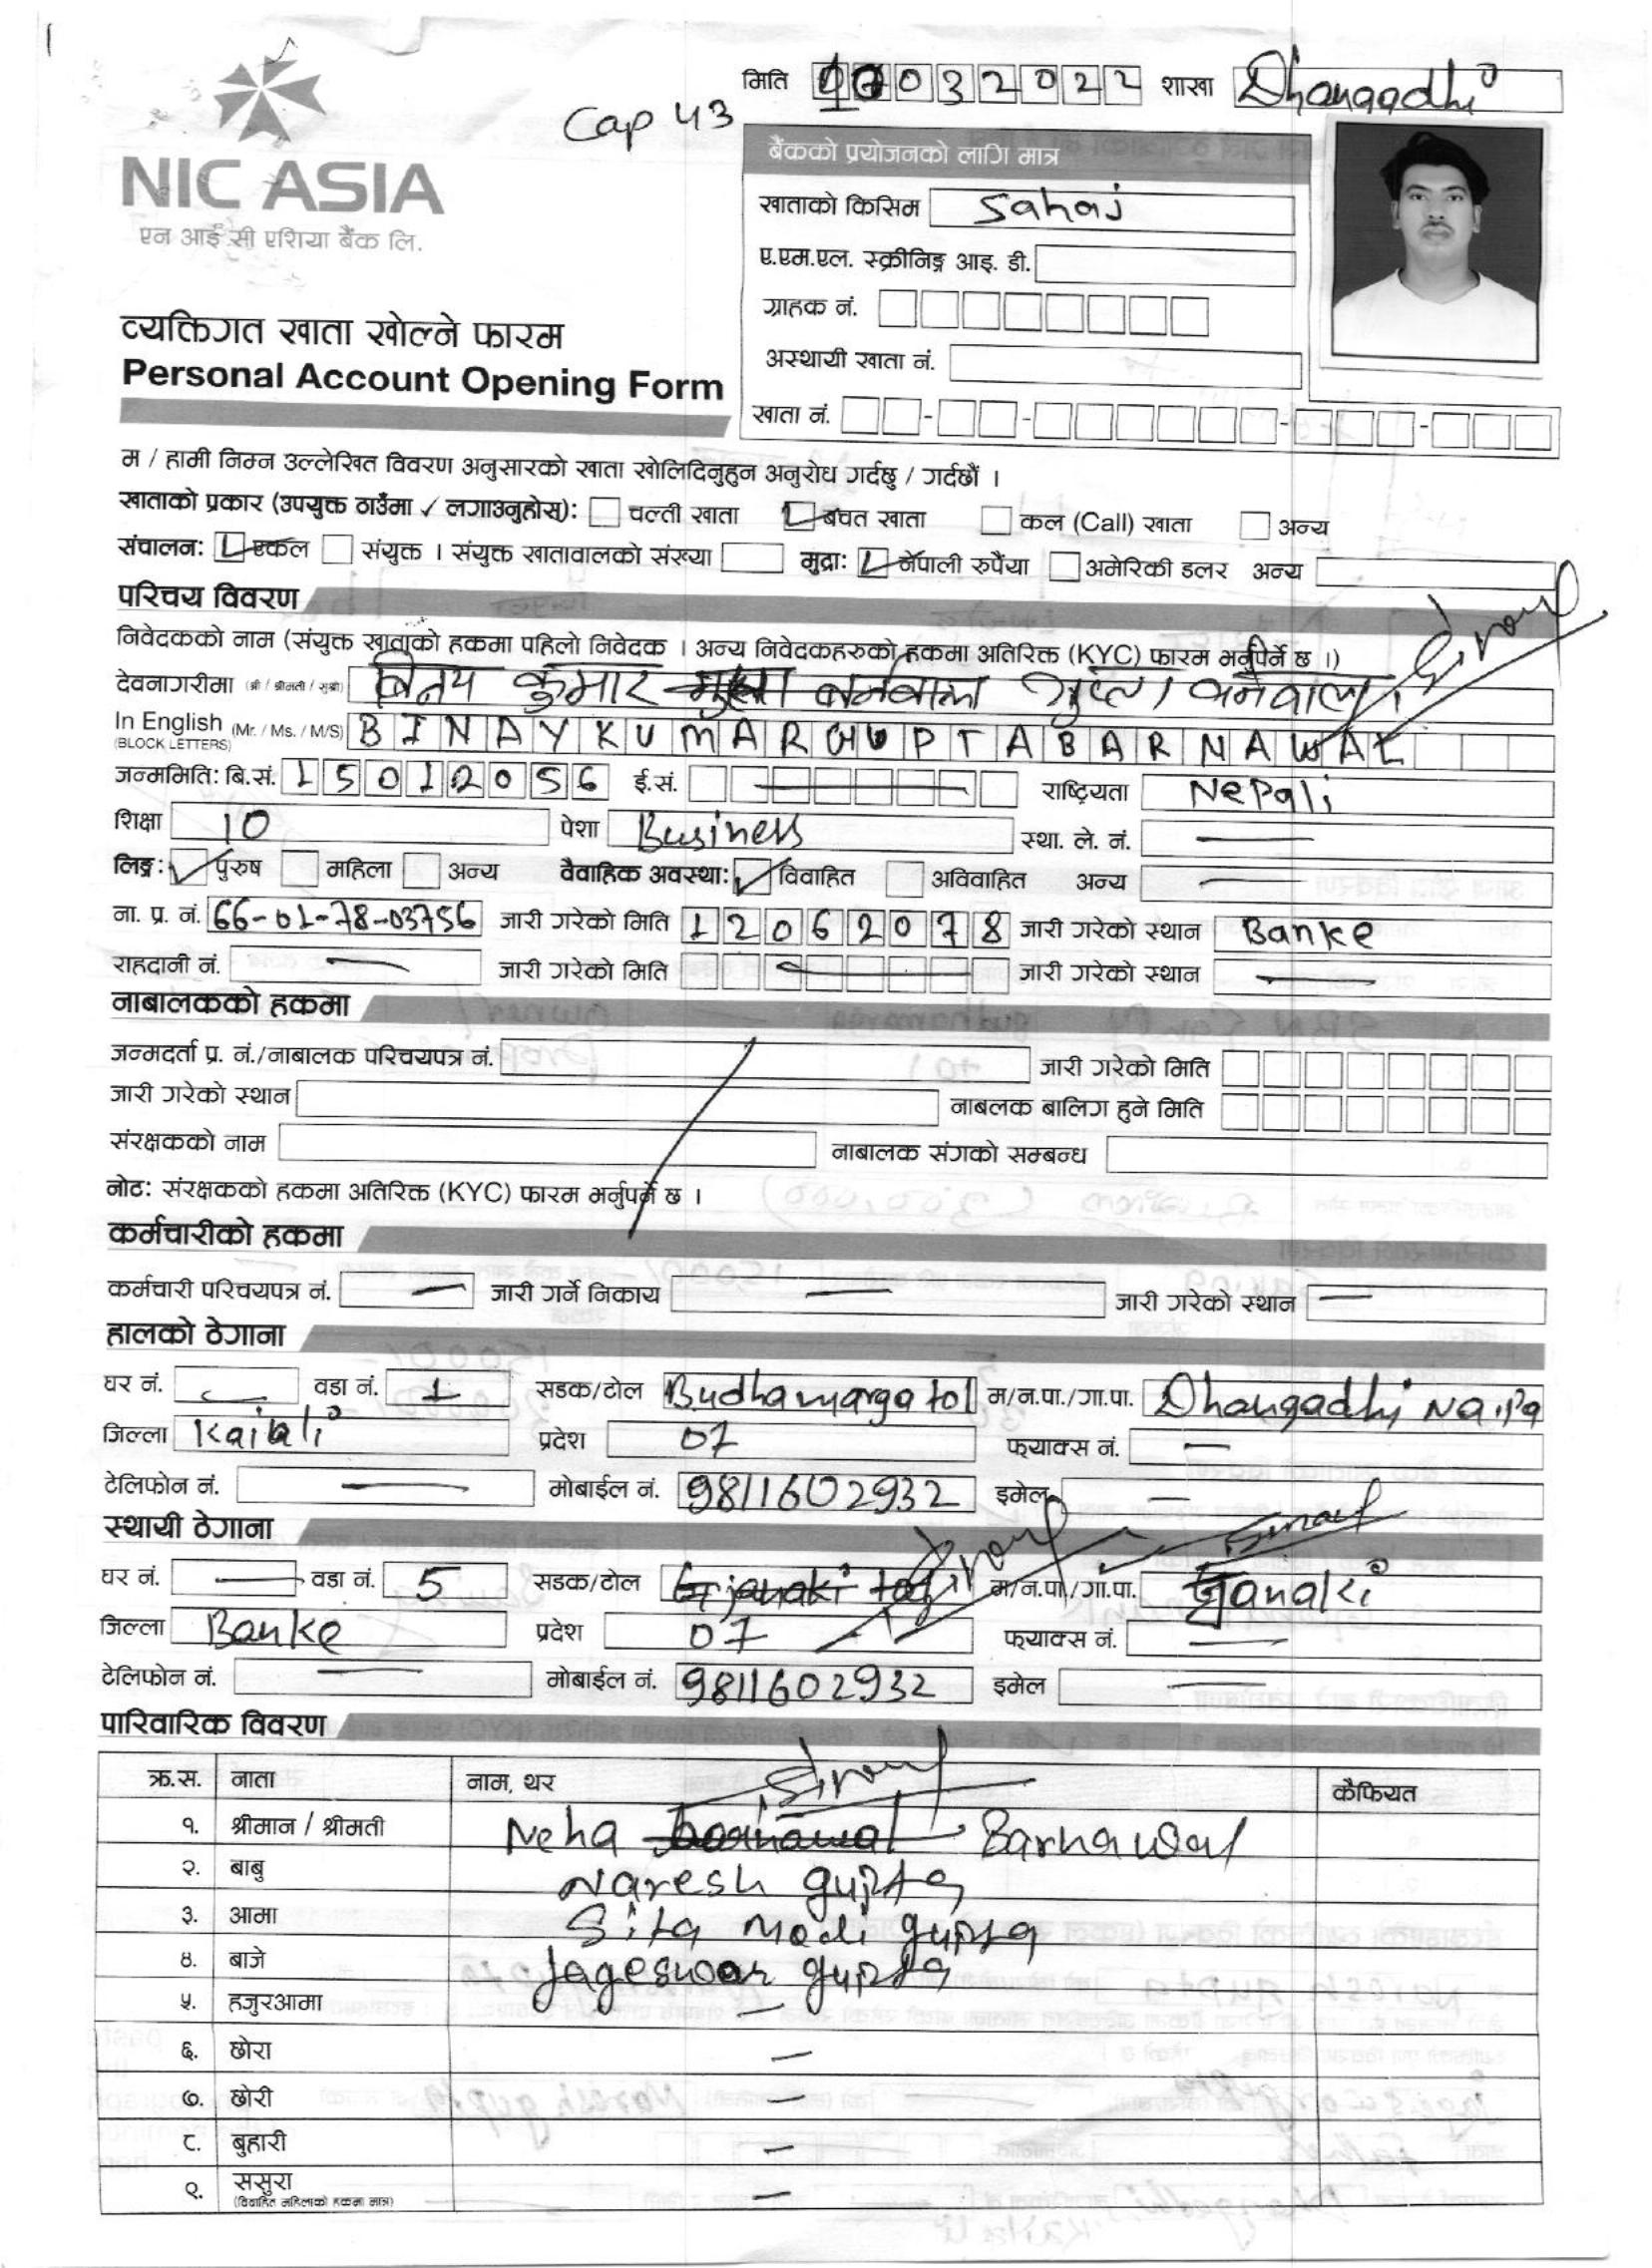 मिति 03 2022 शाखा Dhangadhi
Cap 43
NIC ASIA
एन आई सी एशिया बैंक लि.
बैंकको प्रयोजनको लागि मात्र
खाताको किसिम Sahaj
ए.एम.एल. स्क्रीनिङ्ग आइ. डी.
ग्राहक नं.
अस्थायी खाता नं.
खाता नं.
व्यक्तिगत खाता खोल्ने फारम
Personal Account Opening Form
म / हामी निम्न उल्लेखित विवरण अनुसारको खाता खोलिदिनुहुन अनुरोध गर्दछु / गर्दछौं ।
खाताको प्रकार (उपयुक्त ठाउँमा ✓ लगाउनुहोस्): चल्ती खाता बचत खाता कल (Call) खाता अन्य
संचालन: एकल संयुक्त । संयुक्त खातावालको संख्या मुद्रा: नेपाली रुपैंया अमेरिकी डलर अन्य
परिचय विवरण
निवेदकको नाम (संयुक्त खाताको हकमा पहिलो निवेदक । अन्य निवेदकहरुको हकमा अतिरिक्त (KYC) फारम भर्नुपर्ने छ ।)
देवनागरीमा (श्री / श्रीमती / सुश्री) बिनय कुमार गुप्ता बर्नवाल
In English (Mr. / Ms. / M/S) BINAY KUMAR GUPTA BARNAWAL
(BLOCK LETTERS)
जन्ममिति: बि.सं. 15012056 ई.सं. राष्ट्रियता Nepali
शिक्षा 10 पेशा Business स्था. ले. नं. —
लिङ्ग: पुरुष महिला अन्य वैवाहिक अवस्था: विवाहित अविवाहित अन्य —
ना. प्र. नं. 66-01-78-03756 जारी गरेको मिति 12062078 जारी गरेको स्थान Banke
राहदानी नं. — जारी गरेको मिति — जारी गरेको स्थान —
नाबालकको हकमा
जन्मदर्ता प्र. नं./नाबालक परिचयपत्र नं. जारी गरेको मिति
जारी गरेको स्थान नाबलक बालिग हुने मिति
संरक्षकको नाम नाबालक संगको सम्बन्ध
नोट: संरक्षकको हकमा अतिरिक्त (KYC) फारम भर्नुपर्ने छ ।
कर्मचारीको हकमा
कर्मचारी परिचयपत्र नं. — जारी गर्ने निकाय — जारी गरेको स्थान —
हालको ठेगाना
घर नं. — वडा नं. 1 सडक/टोल Budhamarga tol म/न.पा./गा.पा. Dhangadhi Na.Pa
जिल्ला Kailali प्रदेश 07 फ्याक्स नं. —
टेलिफोन नं. — मोबाईल नं. 9811602932 इमेल —
स्थायी ठेगाना
घर नं. — वडा नं. 5 सडक/टोल म/न.पा./गा.पा. Janaki
जिल्ला Banke प्रदेश 07 फ्याक्स नं. —
टेलिफोन नं. — मोबाईल नं. 9811602932 इमेल —
पारिवारिक विवरण
क्र.स. नाता नाम, थर कैफियत
१. श्रीमान / श्रीमती Neha Barnawal
२. बाबु Naresh gupta
३. आमा Sita Modi gupta
४. बाजे Jageswar gupta
५. हजुरआमा —
६. छोरा —
७. छोरी —
८. बुहारी —
९. ससुरा —
(विवाहित महिलाको हकमा मात्र)